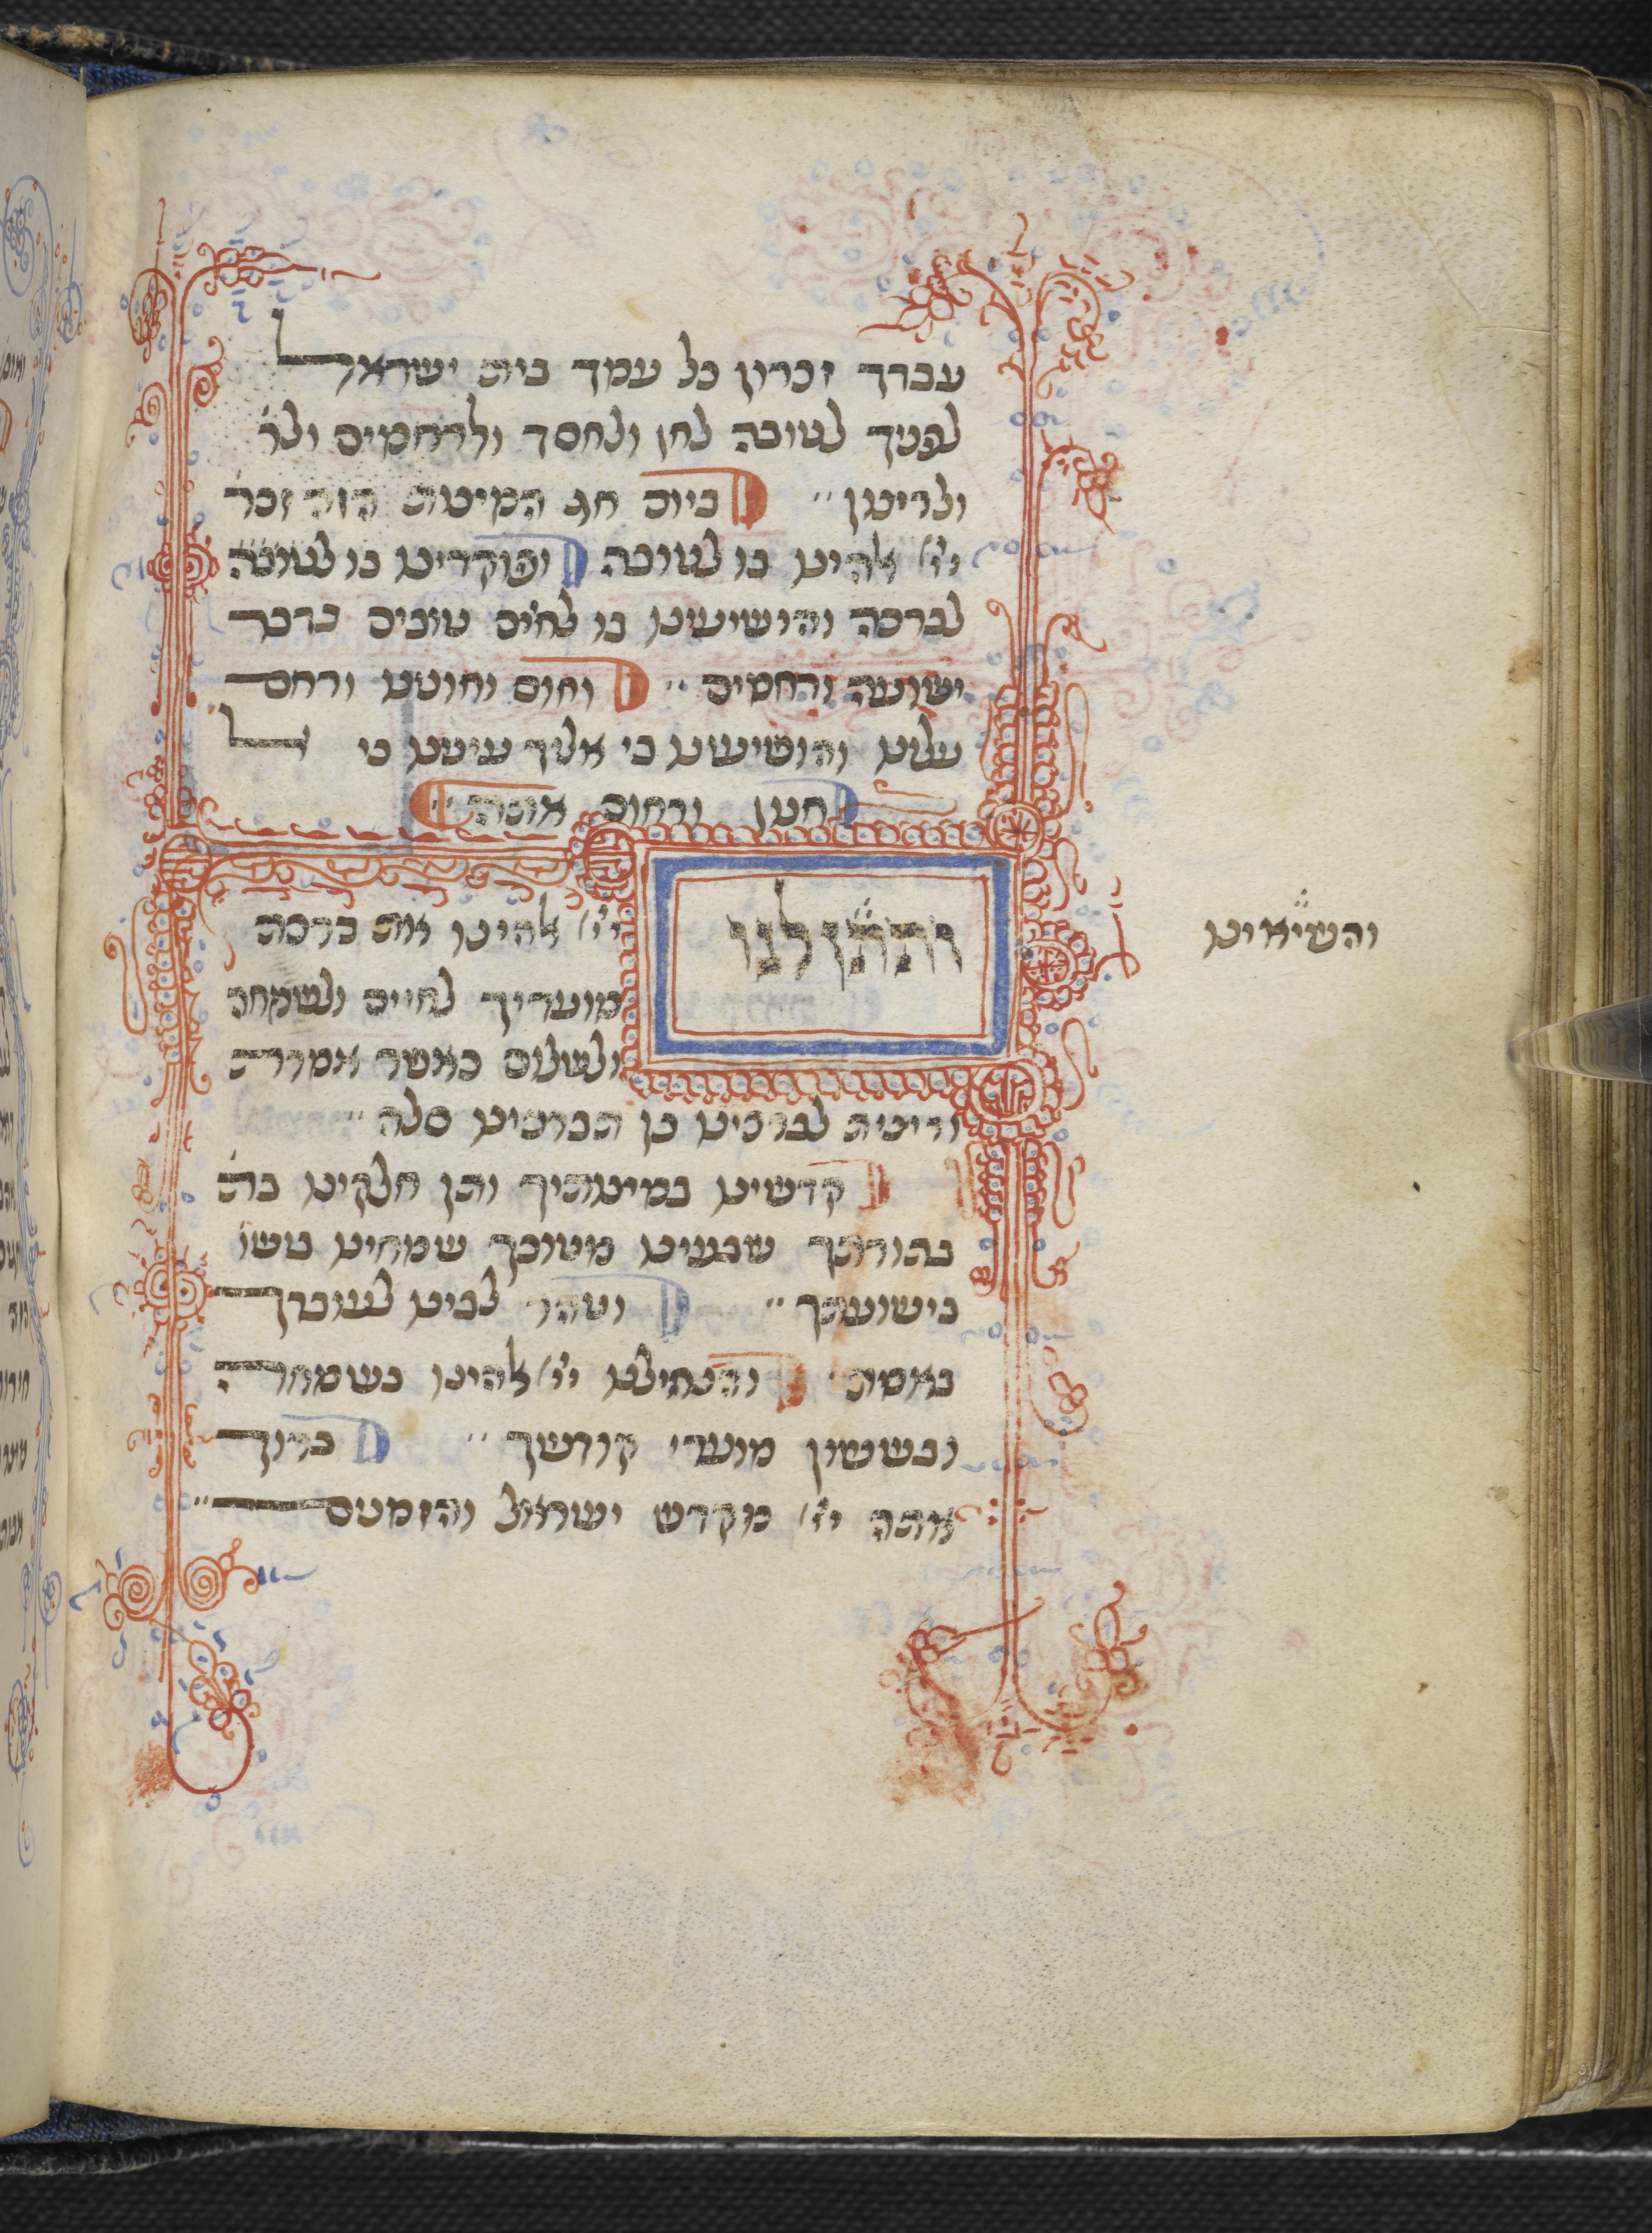 עבדך זכרון כל עמך בית ישראל
לפניך לטובה לחן ולחסד ולרחמים ולר׳
ולריצון׳׳ ביום חג המיצות הזה זכר׳
יי׳ אלהינו בו לטובה ופוקדינו בו לטובה
לברכה והושיענו בו לחי׳ם טובים כדבר
ישועה ורחמים׳׳ וחוס וחונינו ורחם
עלינו והושיענו כי אליך עינינו כי אל
חנון ורחום אתה׳׳
ותתן לנו
יי׳ אלהינו את ברכת
מועדיך לחיים ולשמחה
ולשלום כאשר אמרת
ורצית לברכינו כן תברכינו סלה׳׳
קדשינו במיצותיך ותן חלקינו בת׳
בתורתך שבעינו מטובך שמחינו נפשי׳
בישועתך׳׳ וטהר לבינו לעובדך
באמת והנחילנו יי׳ אלהינו בשמחה
ובששון מועדי קודשך׳׳ ברוך
אתה יי׳ מקדש ישראל והזמנים׳׳
והשיאינו